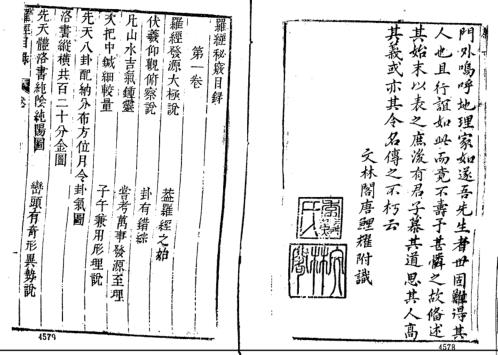 門外嗚呼地理家如遂吾先生者世固難得其
人也且行誼如此而竟不壽予甚憐之故備述
其始末以表之庶後有君子慕其道思其人高
其義或亦其令名傳之不朽云
文林閣唐鯉耀附識
文林閣
4578
羅經秘竅目錄
第一卷
羅經發源太極說 益羅經之始
伏羲仰觀俯察說 卦有錯綜
山水吉氣鍾靈 嘗考萬事發源至理
次把中緘細較量 子午兼用形理說
先天八卦配納分布方位月令卦氣圖
洛書縱橫共百二十分金圖
先天體洛書純陰純陽圖 巒頭有奇形異勢說
4579